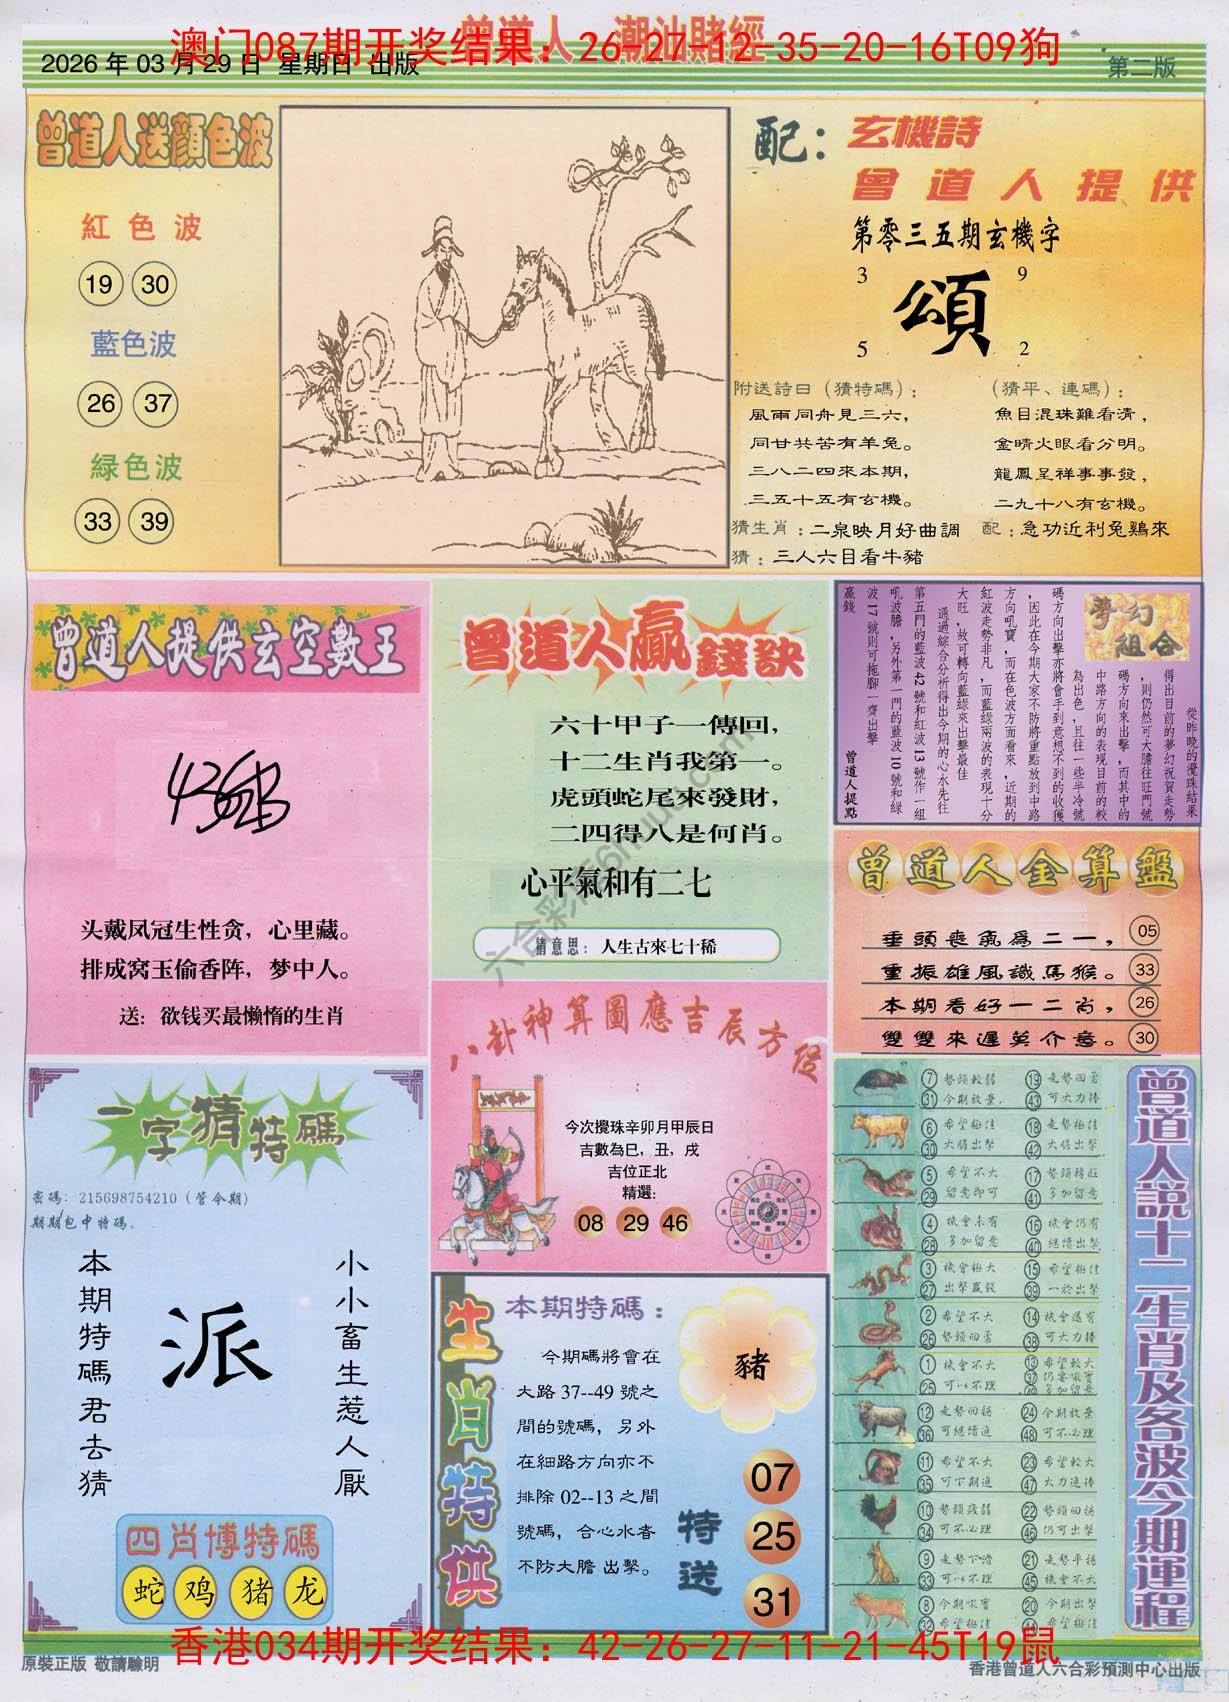 曾道人 潮汕賭經
澳门087期开奖结果：26-27-12-35-20-16T09狗
2026 年 03 月 29 日 星期日 出版
第二版
曾道人送顏色波
紅色波
19 30
藍色波
26 37
緑色波
33 39
配：玄機詩
曾道人提供
第零三五期玄機字
3 9
頌
5 2
附送詩曰（猜特碼）：
風雨同舟見三六，
同甘共苦有羊兔。
三八二四來本期，
三五十五有玄機。
（猜平、連碼）：
魚目混珠難看清，
金晴火眼看分明。
龍鳳呈祥事事發，
二九十八有玄機。
猜生肖：二泉映月好曲調
配：急功近利兔鷄來
猜：三人六目看牛豬
曾道人提供玄空數王
头戴凤冠生性贪，心里藏。
排成窝玉偷香阵，梦中人。
送：欲钱买最懒惰的生肖
曾道人贏錢訣
六十甲子一傳回，
十二生肖我第一。
虎頭蛇尾來發財，
二四得八是何肖。
心平氣和有二七
猜意思：人生古來七十稀
夢幻組合
從昨晚的攪珠結果
得出目前的夢幻祝賀走勢
，則仍然可大膽往旺門號
碼方向來出擊，而其中的
中路方向的表現目前的較
為出色，且往一些半冷號
碼方向出擊亦將會手到意想不到的收獲
，因此在今期大家不防將重點放到中路
方向吼寶，而在色波方面看來，近期的
紅波走勢非凡，而藍綠兩波的表現十分
大旺，故可轉向藍綠來出擊最佳
通過綜合分析得出今期的心水先往
第五門的藍波 42 號和紅波 13 號作一組
吼波膽，另外第一門的藍波 10 號和綠
波 17 號則可拖腳一齊出擊
贏錢
曾道人提點
曾道人金算盤
垂頭喪氣爲二一， 05
重振雄風識馬猴。 33
本期看好一二肖， 26
雙雙來遲莫介意。 30
八卦神算圖應吉辰方位
今次攪珠辛卯月甲辰日
吉數為巳，丑，戌
吉位正北
精選：
08 29 46
一字猜特碼
密碼：215698754210（管令期）
期期包中特碼。
本期特碼君去猜
派
小小畜生惹人厭
四肖博特碼
蛇 鸡 猪 龙
生肖特供
本期特碼：
今期碼將會在
大路 37--49 號之
間的號碼，另外
在細路方向亦不
排除 02--13 之間
號碼，合心水者
不防大膽 出擊。
豬
特送
07
25
31
曾道人説十二生肖及各波今期運程
7 勢頭較弱 19 走勢回勇
31 今期放棄 43 可大力捧
6 希望極佳 18 走勢極佳
30 大膽出擊 42 大膽出擊
5 希望不大 17 勢頭轉旺
29 留意即可 41 多加留意
4 機會未有 16 機會仍有
28 多加留意 40 繼續出擊
3 機會極大 15 希望極佳
27 出擊贏錢 39 一於出擊
2 希望不大 14 機會還有
26 勢頭回勇 38 可大力捧
1 機會不大 13 希望較大
25 可以不理 37 仍要吼實
49 多加留意
12 走勢回穩 24 今期放棄
36 可繼續追 48 可不必理
11 希望不大 23 希望較大
35 可下期追 47 大力追捧
10 勢頭殘弱 22 勢頭回穩
34 可不必理 46 仍可出擊
9 走勢下滑 21 走勢平穩
33 可以不理 45 機會不大
8 今期吼實 20 今期出擊
32 希望極佳 44 希望極佳
香港034期开奖结果：42-26-27-11-21-45T19鼠
原裝正版 敬請驗明
香港曾道人六合彩預測中心出版